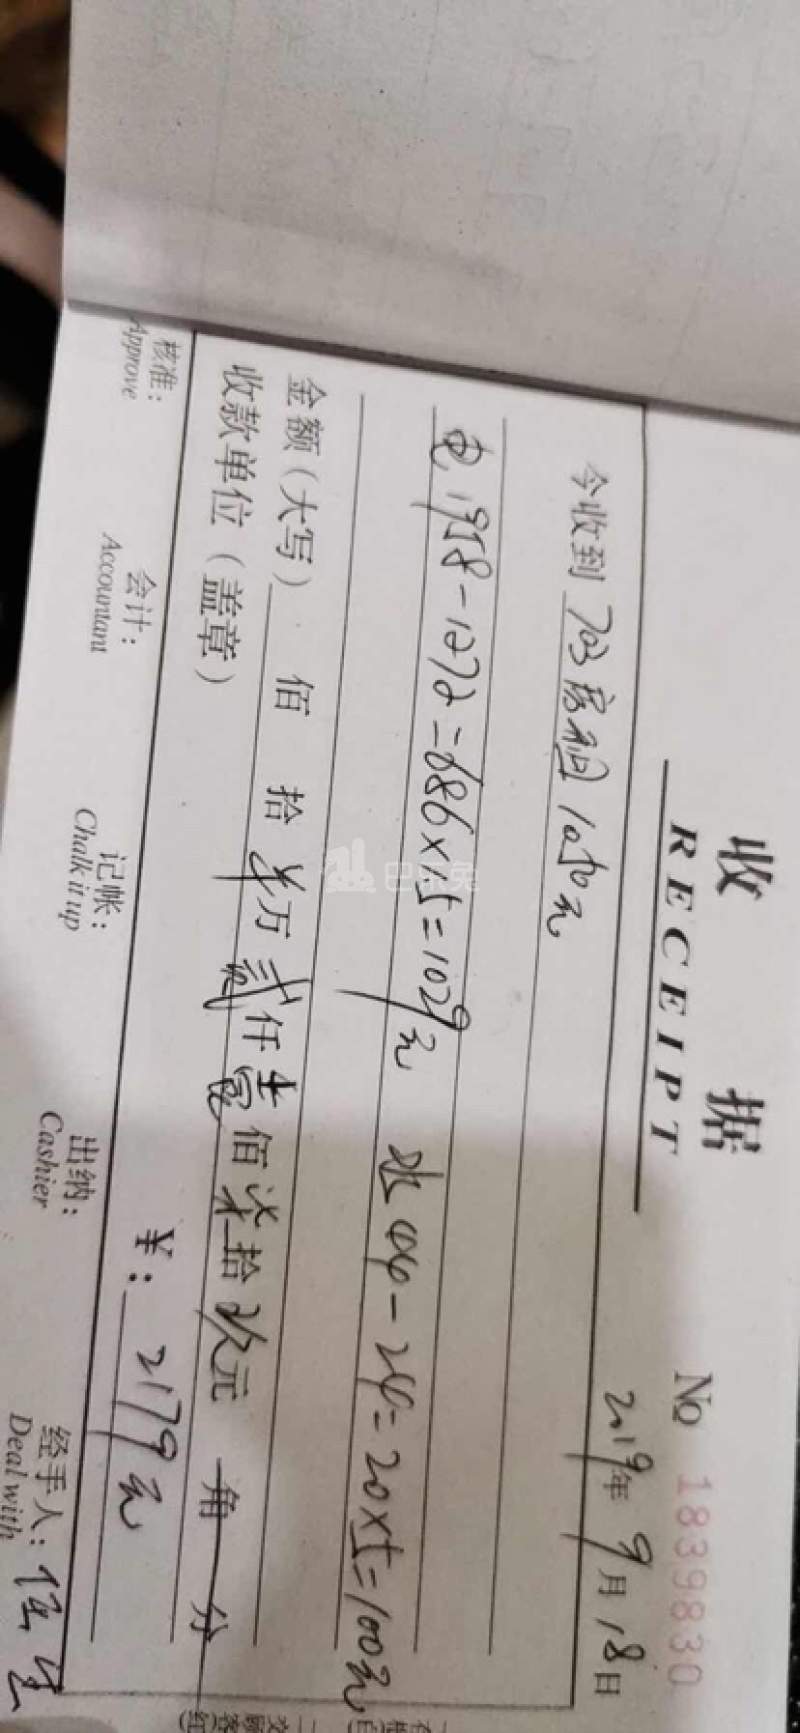 收 据
RECEIPT
№ 1839830
2019年 9月 18日
今收到 703房租1050元
电1958-1272=686×1.5=1029元 水44-24=20×5=100元
金额(大写) 佰 拾 万 贰仟 壹佰 柒拾 玖元 角 分
收款单位(盖章) ¥: 2179元
核准: 会计: 记帐: 出纳: 经手人:
Approve Accountant Chalk it up Cashier Deal with
巴乐兔